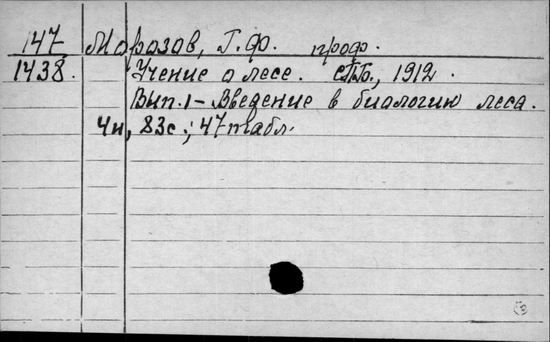 147 Морозов, Г. Ф. проф.
1438. Учение о лесе. СПБ., 1912.
Вып. 1 - Введение в биологию леса.
4н, 83с.; 47 табл.